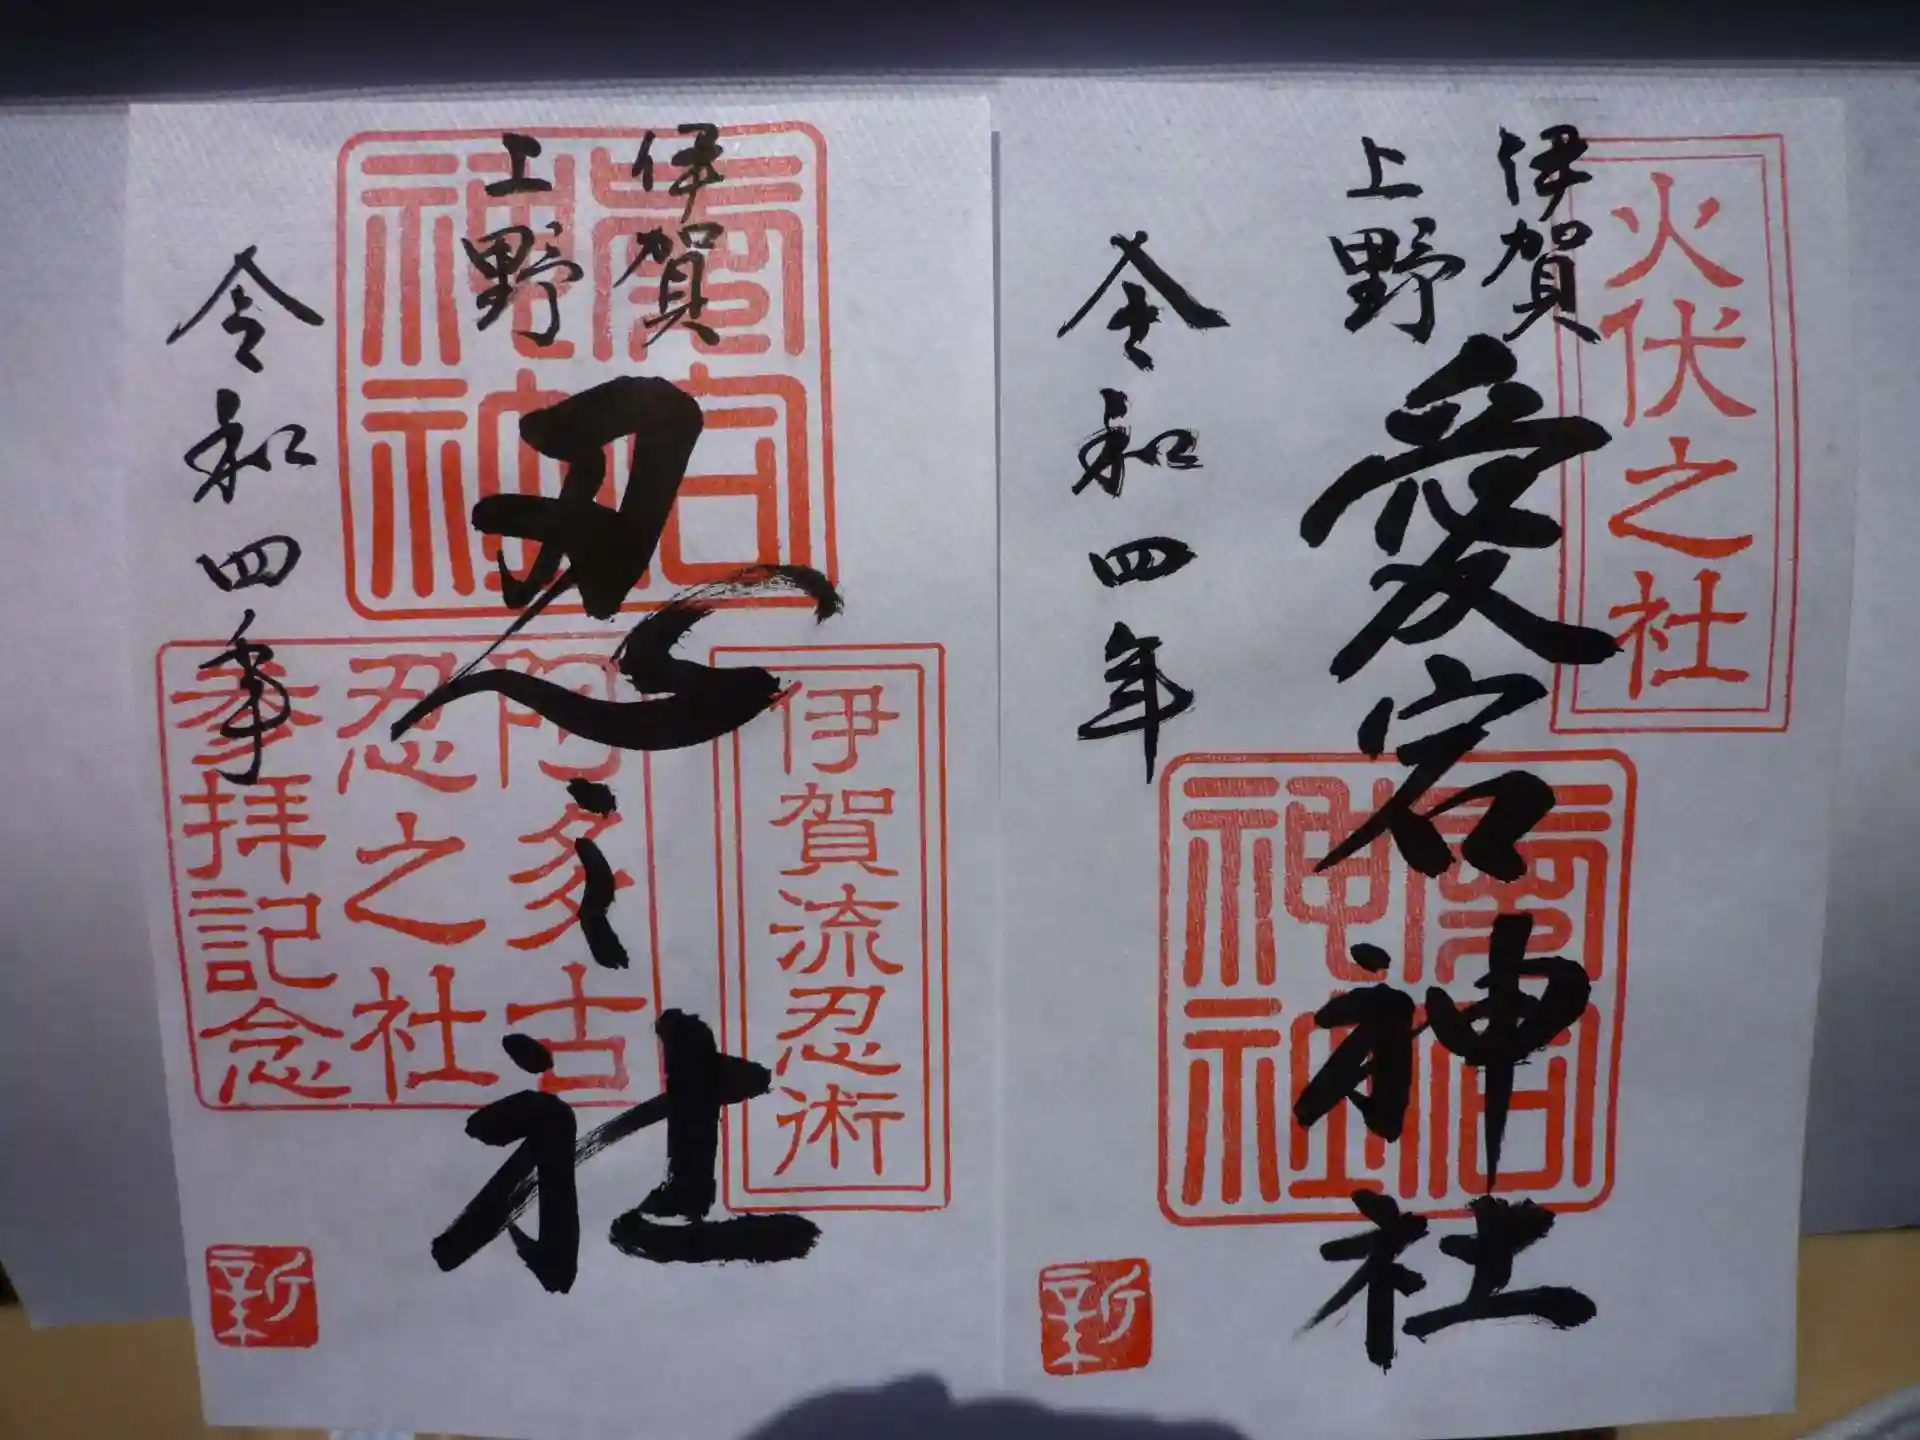 火伏之社
伊賀
上野
愛宕神社
愛宕
神社
令和四年
新
伊賀
上野
忍之社
愛宕
神社
伊賀流忍術
阿多古
忍之社
参拝記念
令和四年
新